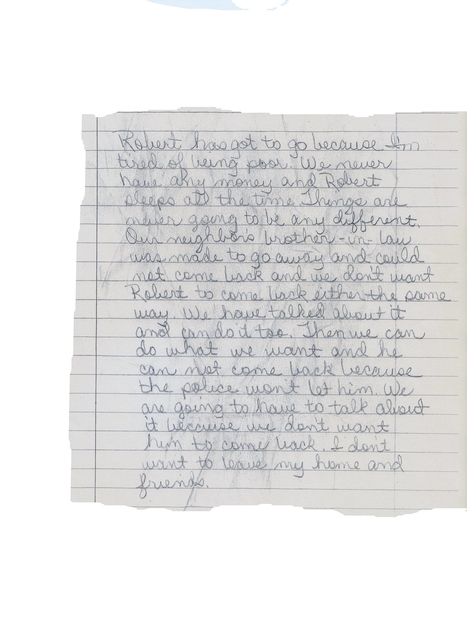 Robert has got to go because I'm
tired of being poor. We never
have any money and Robert
sleeps all the time. Things are
never going to be any different.
Our neighbors brother-in-law
was made to go away and could
not come back and we don't want
Robert to come back either the same
way. We have talked about it
and can do it too. Then we can
do what we want and he
can not come back because
the police won't let him. We
are going to have to talk about
it because we don't want
him to come back. I don't
want to leave my home and
friends.